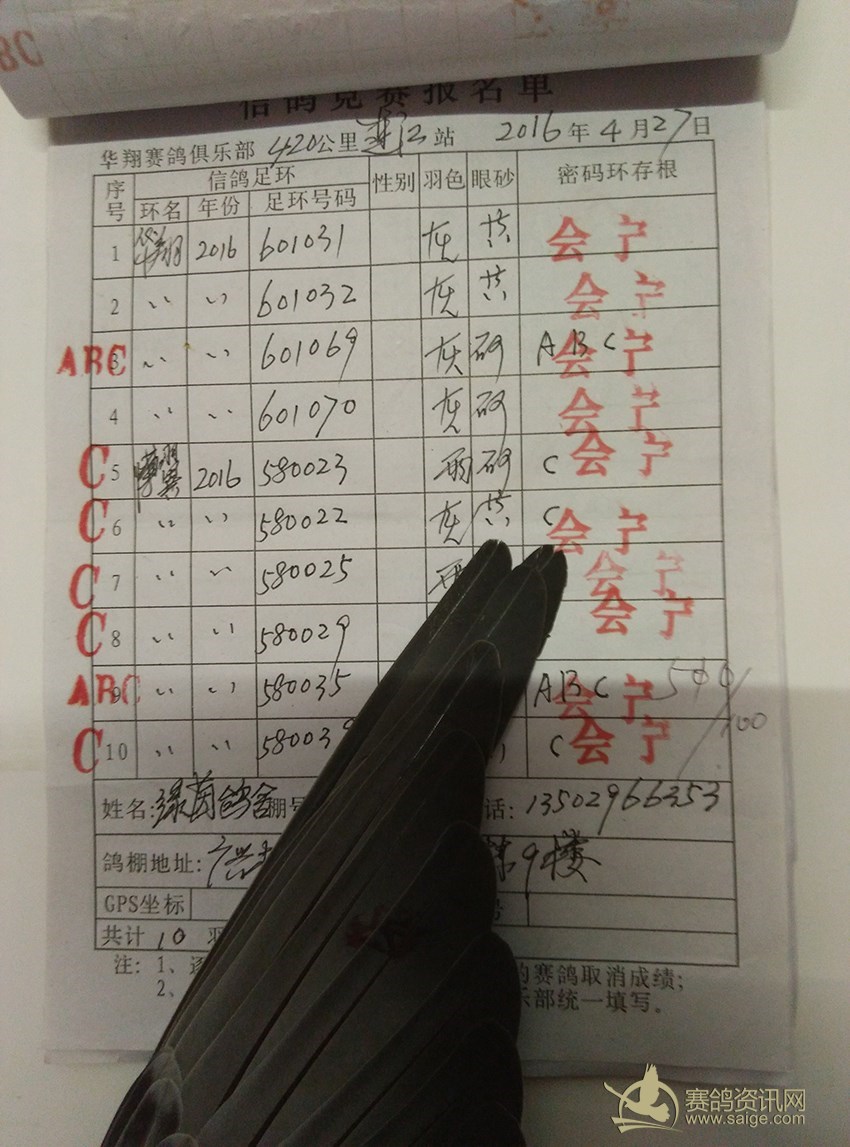 BC
信鸽竞赛报名单
华翔赛鸽俱乐部 420公里 连江 站 2016年4月27日
序号 信鸽足环 性别 羽色 眼砂 密码环存根
环名 年份 足环号码
1 华翔 2016 601031 灰 黄 会宁
2 〃 〃 601032 灰 黄 会宁
ABC 3 〃 〃 601069 灰 砂 ABC 会宁
4 〃 〃 601070 灰 砂 会宁
C 5 2016 580023 雨 砂 C 会宁
C 6 〃 〃 580022 灰 黄 C 会宁
C 7 〃 〃 580025 雨 会宁
C 8 〃 〃 580029 会宁
ABC 9 〃 〃 580035 ABC 会宁 500/100
C 10 〃 〃 58003 C 会宁
姓名:绿茵鸽舍 棚号 话:13502966353
鸽棚地址: 9楼
GPS坐标 号
共计 10 羽
注: 1、逐 的赛鸽取消成绩;
2、 乐部统一填写。
赛鸽资讯网
www.saige.com